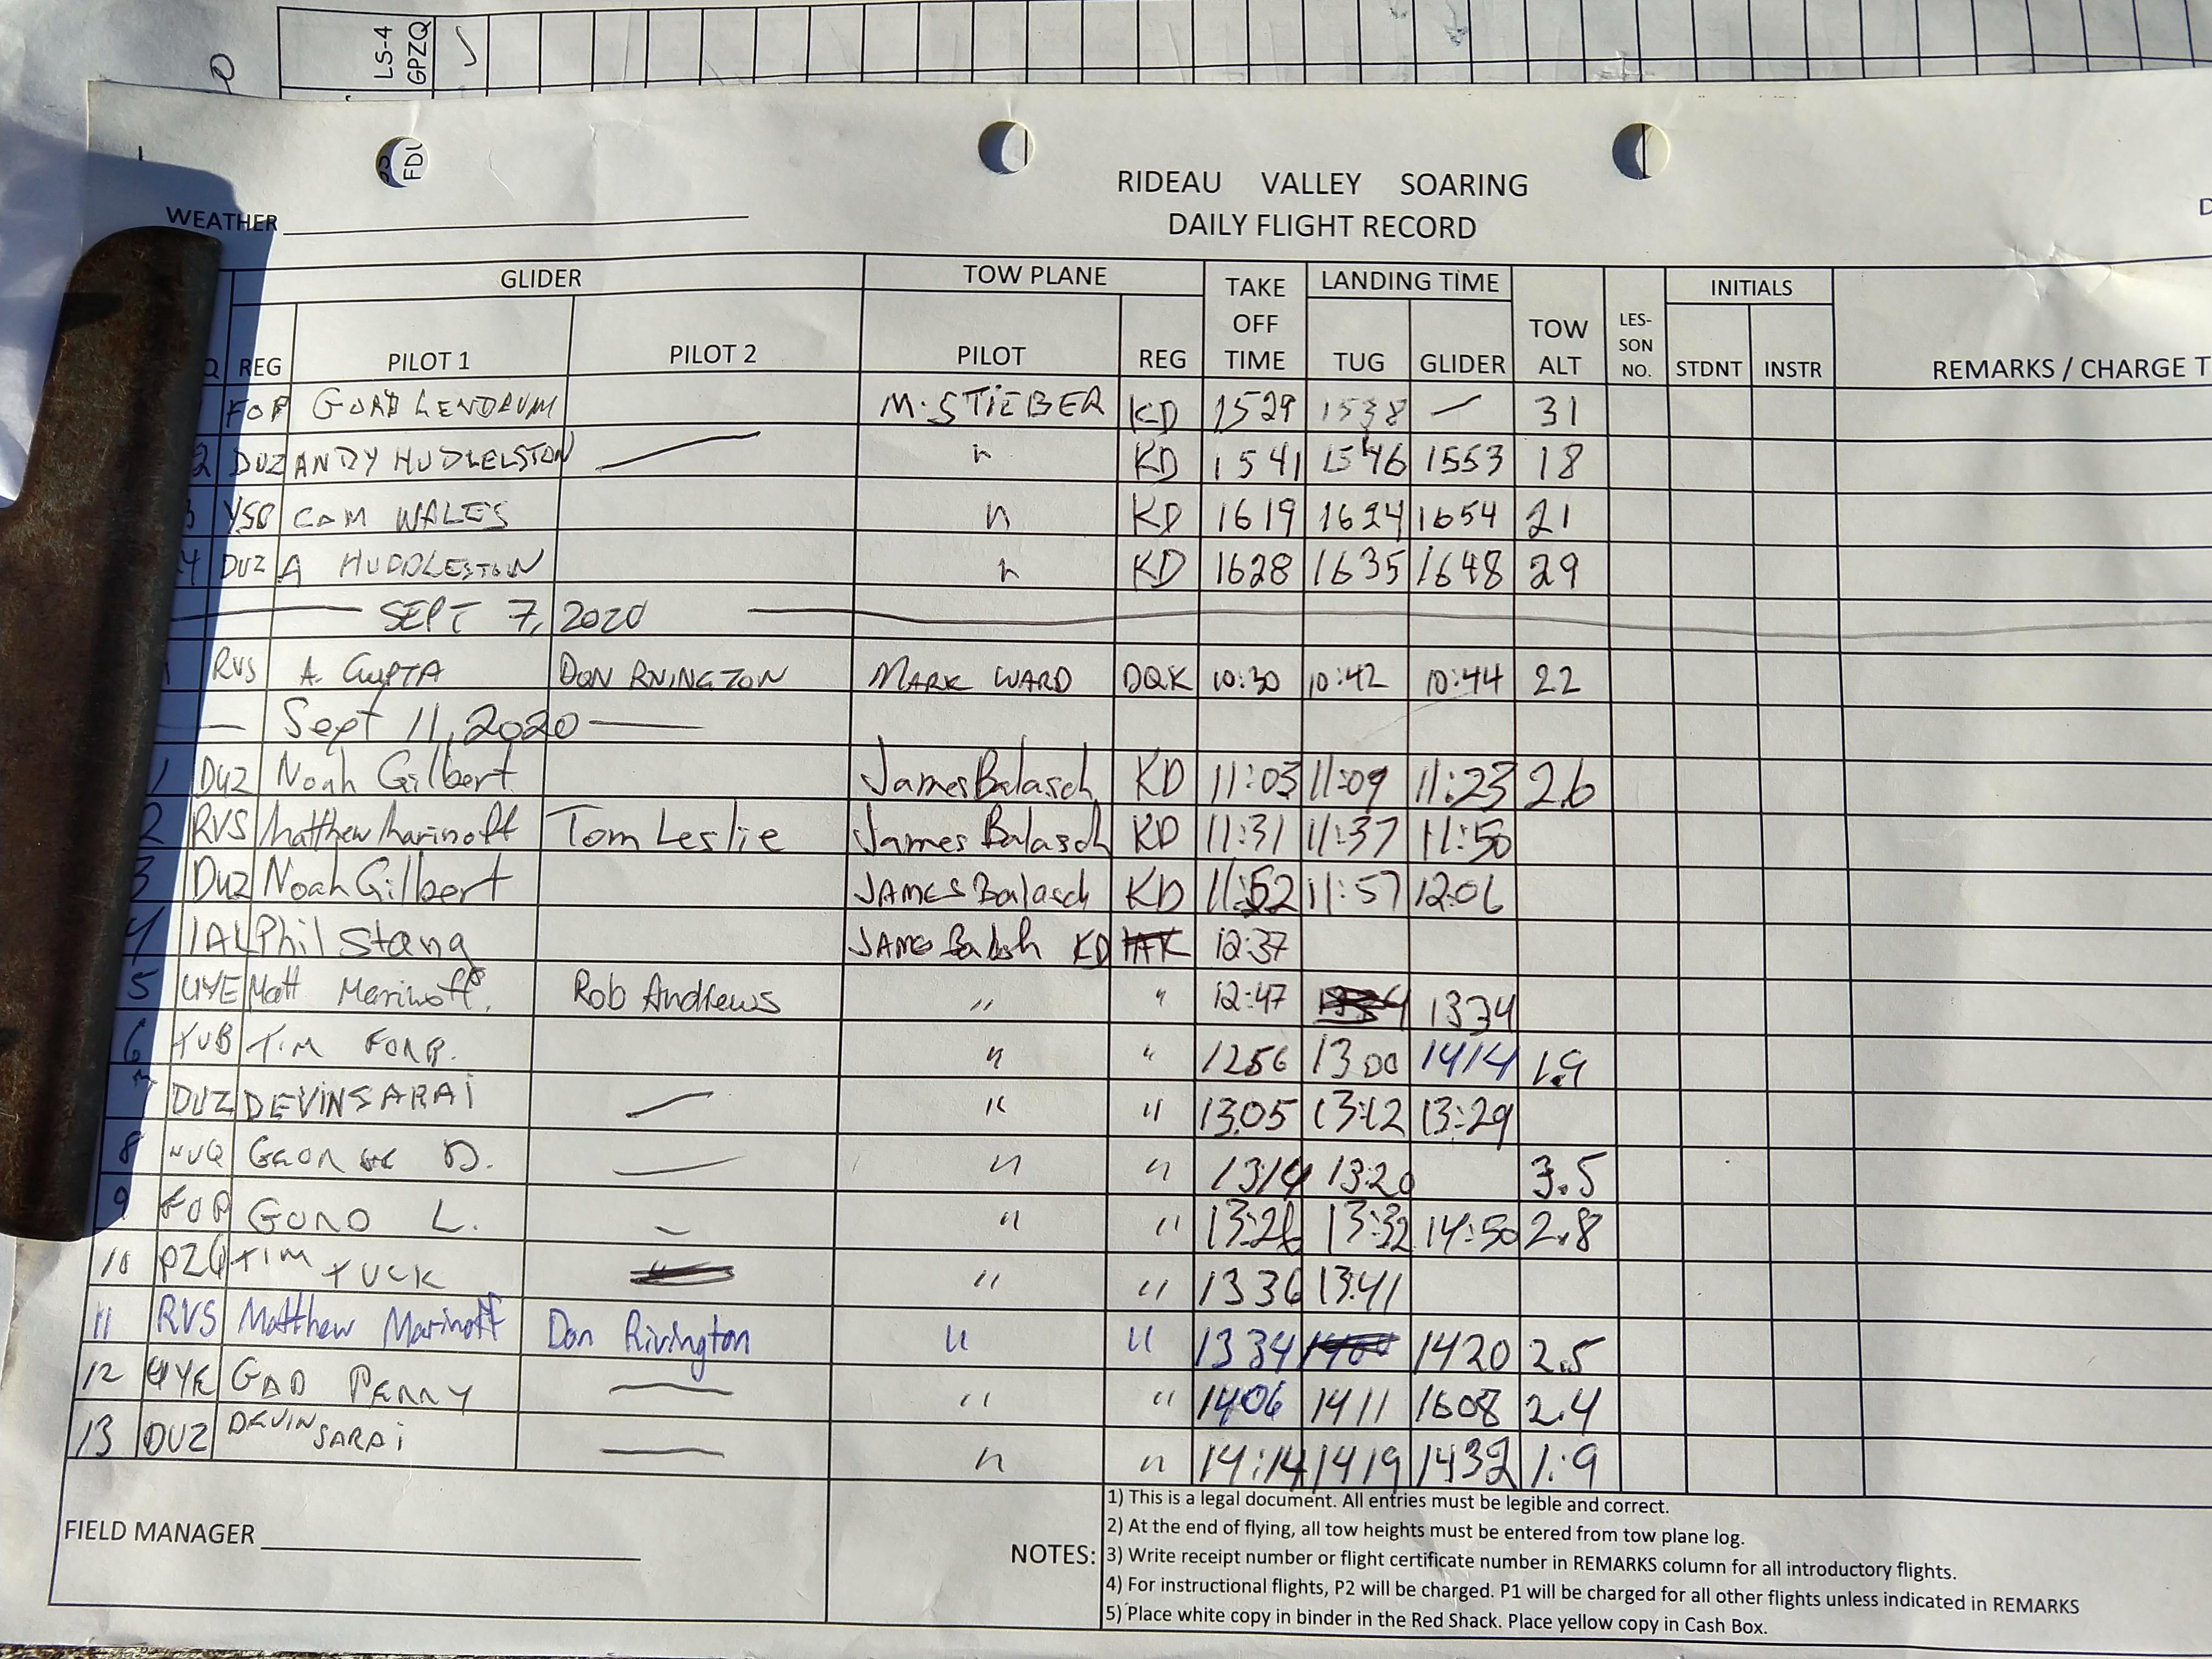 LS-4
GPZQ
FDU
RIDEAU VALLEY SOARING
DAILY FLIGHT RECORD
WEATHER
GLIDER TOW PLANE TAKE OFF TIME LANDING TIME TOW ALT LES-SON NO. INITIALS
REG PILOT 1 PILOT 2 PILOT REG TUG GLIDER STDNT INSTR REMARKS / CHARGE T
FOP GORD LENDRUM M. STIEBER KD 1529 1538 — 31
2 DUZ ANDY HUDLELSTON — " KD 1541 1546 1553 18
3 CAM WALES " KD 1619 1624 1654 21
4 DUZ A HUDDLESTON " KD 1628 1635 1648 29
SEPT 7, 2020
1 RVS A. GUPTA DON RIVINGTON MARK WARD DQK 10:30 10:42 10:44 22
— Sept 11, 2020 —
1 DUZ Noah Gilbert James Balasch KD 11:03 11:09 11:23 2.6
2 RVS Matthew Marinoff Tom Leslie James Balasch KD 11:31 11:37 11:50
3 DUZ Noah Gilbert JAMES Balasch KD 11:52 11:57 12:06
4 IAL Phil Stang JAMES KD 12:37
5 UYE Matt Marinoff. Rob Andrews " " 12:47 1334
6 TUB TIM " " 1256 1300 1414 1.9
7 DUZ DEVIN SARAI — " " 13:05 13:12 13:29
8 NUQ GEORGE D. — " " 13:14 13:20 3.5
9 FOP GORD L. — " " 13:26 13:32 14:50 2.8
10 PZQ TIM TUCK " " 1336 13:41
11 RVS Matthew Marinoff Dan Rivington " " 1334 1420 2.5
12 UYE GAD PERRY — " " 1406 1411 1608 2.4
13 DUZ DEVIN SARAI — " " 14:14 1419 1432 1.9
FIELD MANAGER
NOTES:
1) This is a legal document. All entries must be legible and correct.
2) At the end of flying, all tow heights must be entered from tow plane log.
3) Write receipt number or flight certificate number in REMARKS column for all introductory flights.
4) For instructional flights, P2 will be charged. P1 will be charged for all other flights unless indicated in REMARKS
5) Place white copy in binder in the Red Shack. Place yellow copy in Cash Box.